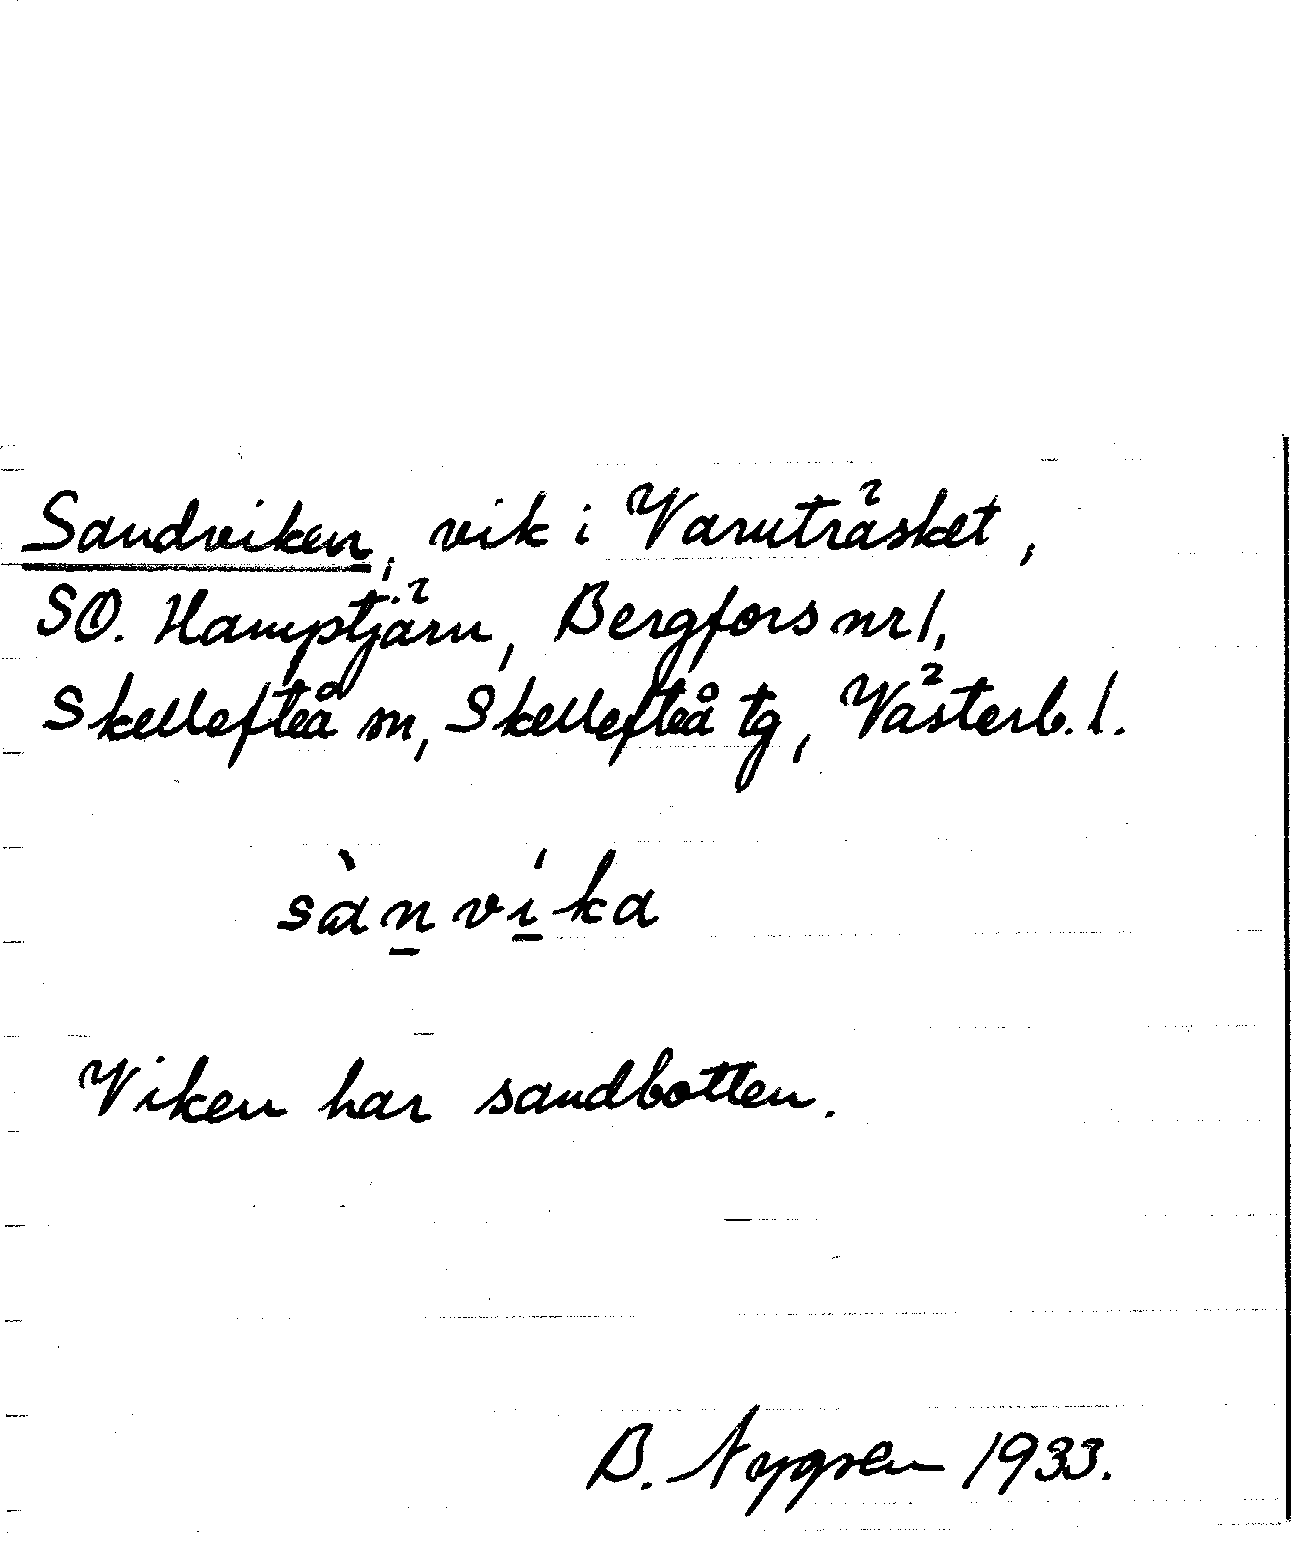 Sandviken, vik i Varuträsket,
SO. Hamptjärn, Bergfors nr 1,
Skellefteå sn, Skellefteå tg, Västerb. l.
sànvíka
Viken har sandbotten.
B. Nygren 1933.